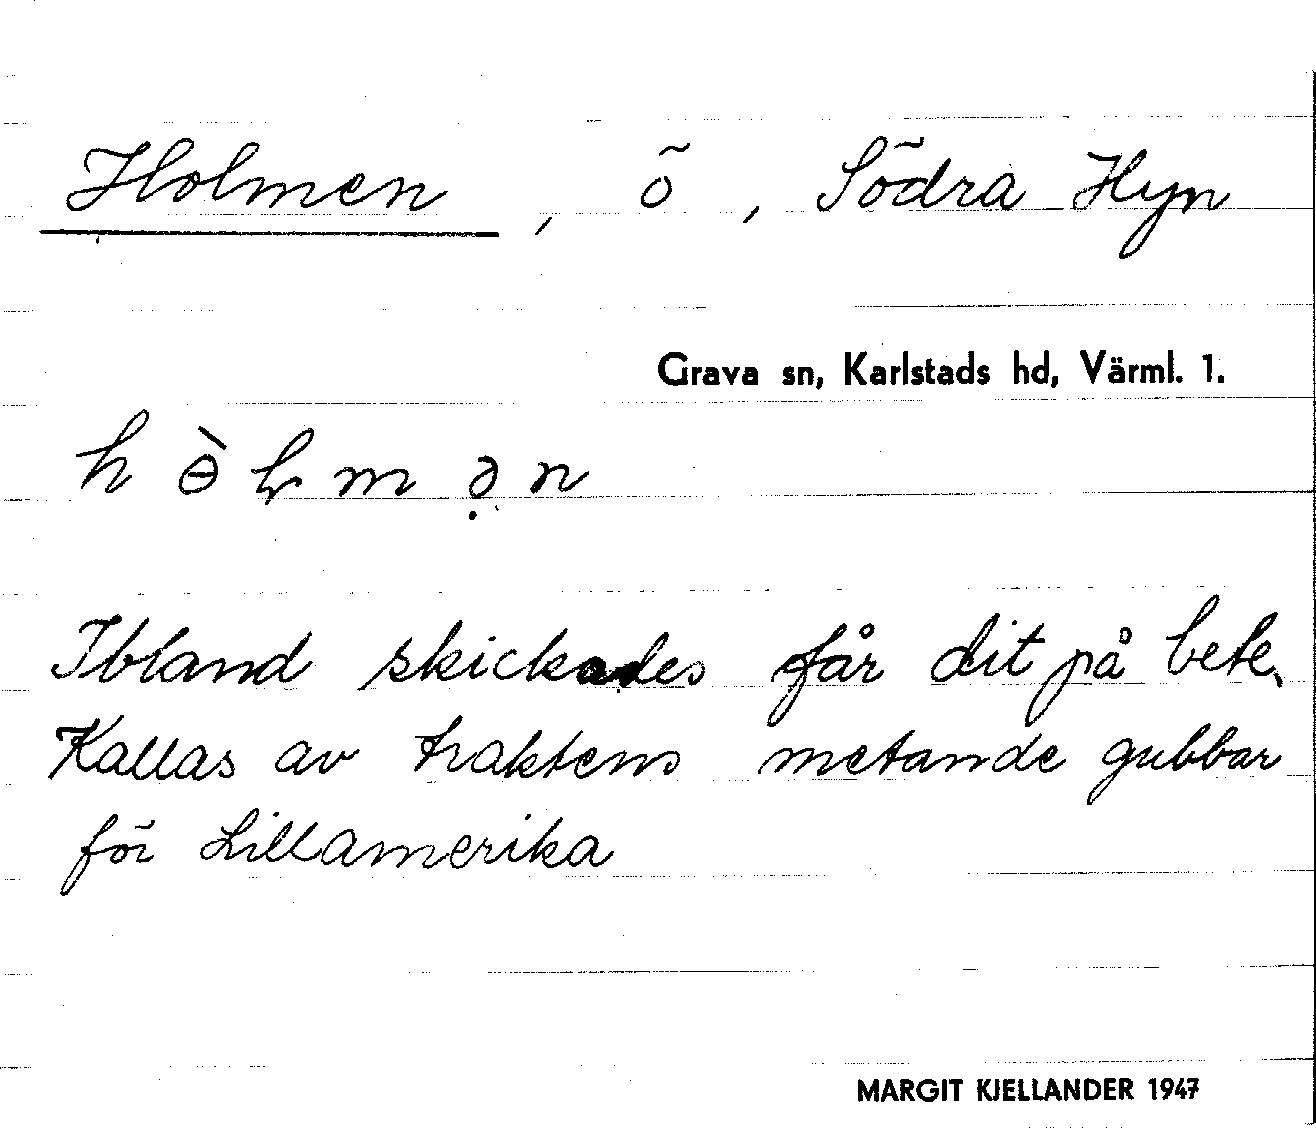 Holmen, ö, Södra Hyn
Grava sn, Karlstads hd, Värml. 1.
hɵ̀ɭmə̣n
Ibland skickades får dit på bete.
Kallas av traktens metande gubbar
för Lillamerika
MARGIT KJELLANDER 1947